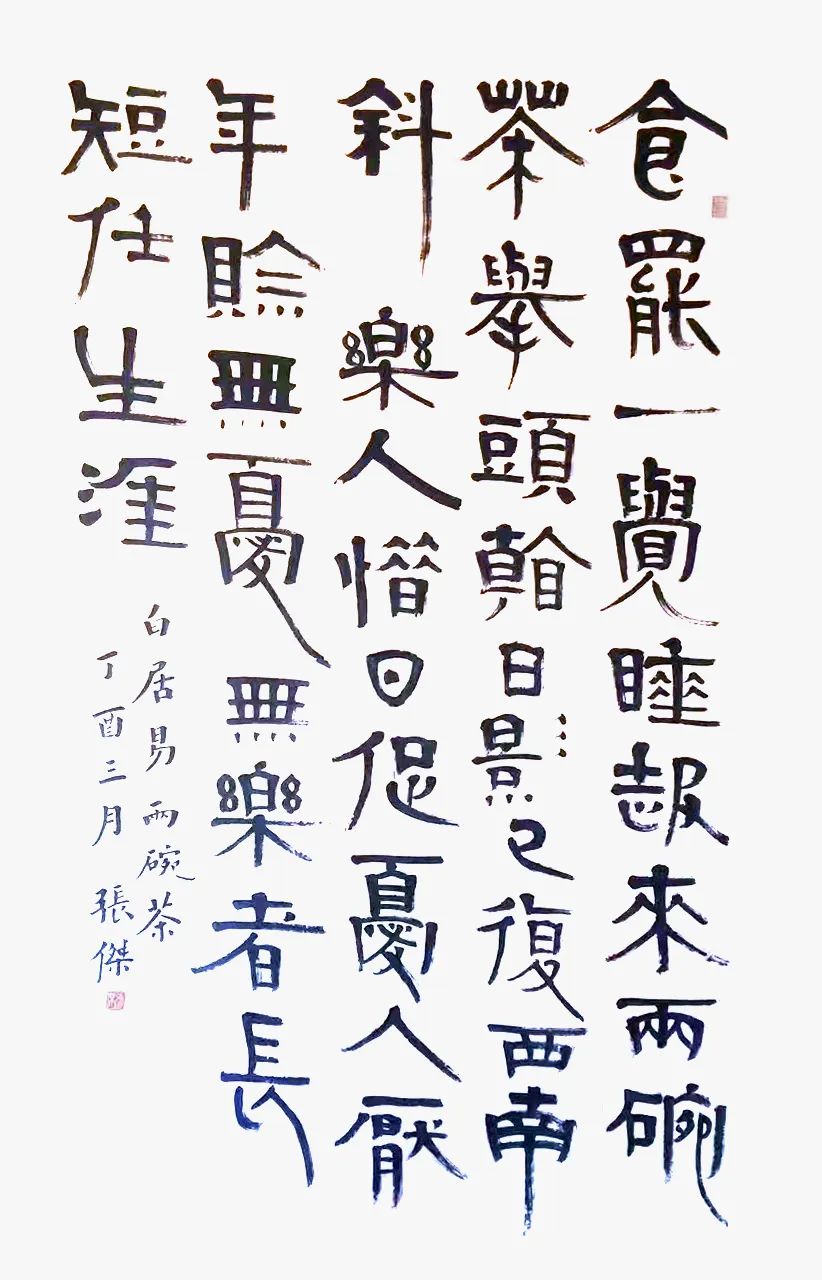 食罷一覺睡起來兩碗
茶舉頭看日影已復西南
斜樂人惜日促憂人厭
年賒無憂無樂者長
短任生涯
白居易兩碗茶
丁酉三月張傑